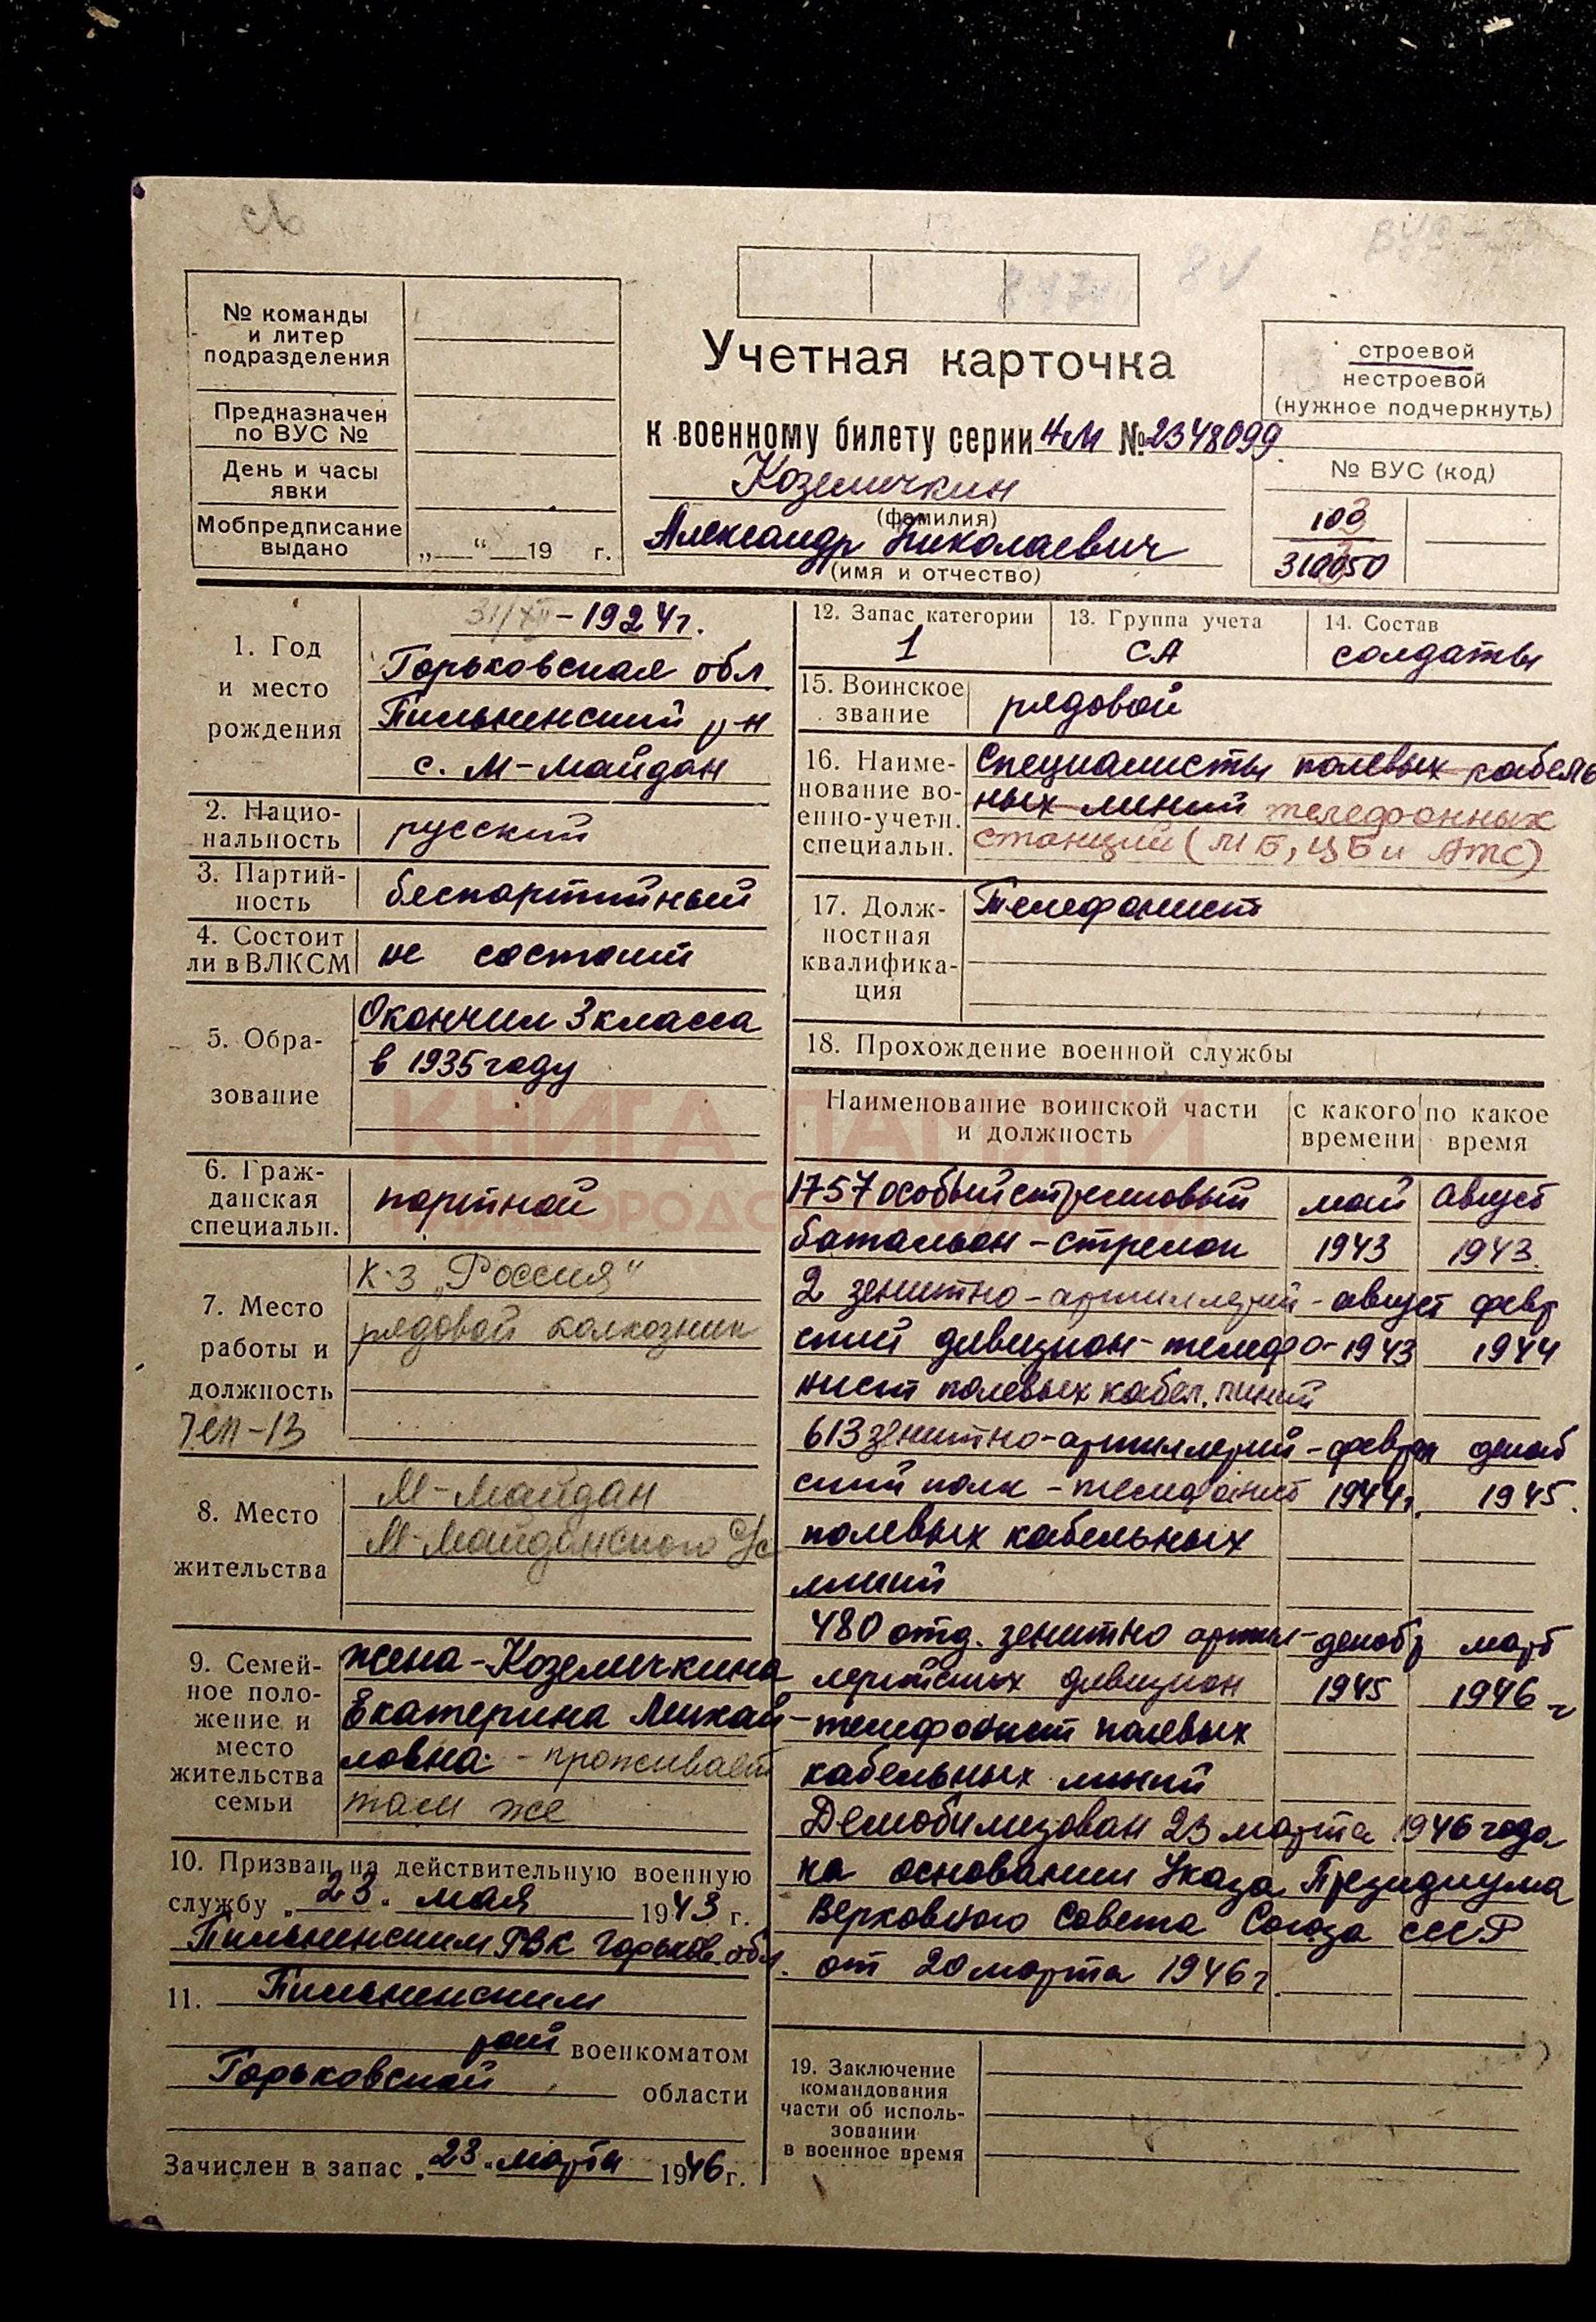 св
8 V
№ команды
и литер
подразделения
Предназначен
по ВУС №
День и часы
явки
Мобпредписание
выдано
„ “ 19 г.
Учетная карточка
к военному билету серии НМ № 2348099
Коземичкин
(фамилия)
Александр Николаевич
(имя и отчество)
строевой
нестроевой
(нужное подчеркнуть)
№ ВУС (код)
100
310050
1. Год
и место
рождения
31/XII - 1924г.
Горьковская обл
Пильненский р-н
с. М-Майдан
2. Нацио-
нальность
русский
3. Партий-
ность
беспартийный
4. Состоит
ли в ВЛКСМ
не состоит
5. Обра-
зование
Окончил 3 класса
в 1935 году
6. Граж-
данская
специальн.
портной
7. Место
работы и
должность
к-з „Россия“
рядовой колхозник
8. Место
жительства
М-Майдан
М-Майданского с/с
9. Семей-
ное поло-
жение и
место
жительства
семьи
жена - Коземичкина
Екатерина Михай-
ловна - проживает
там же
10. Призван на действительную военную
службу „23“ мая 1943 г.
Пильненским РВК Горьков. обл.
11. Пильненским
рай военкоматом
Горьковской области
Зачислен в запас „23“ марта 1946 г.
12. Запас категории
1
13. Группа учета
СА
14. Состав
солдаты
15. Воинское
звание
рядовой
16. Наиме-
нование во-
енно-учетн.
специальн.
Специалисты полевых кабель
ных линий телефонных
станций (МБ, ЦБ и АТС)
17. Долж-
ностная
квалифика-
ция
Телефонист
18. Прохождение военной службы
Наименование воинской части
и должность
с какого
времени
по какое
время
1757 особый стрелковый май август
батальон - стрелок 1943 1943.
2 зенитно-артиллерий- август февр
ский дивизион - телефо- 1943 1944
нист полевых кабел. линий
613 зенитно-артиллерий- феврал декаб
ский полк - телефонист 1944г. 1945.
полевых кабельных
линий
480 отд. зенитно артил- декабр март
лерийских дивизион 1945 1946 г
- телефонист полевых
кабельных линий
Демобилизован 23 марта 1946 года
на основании Указа Президиума
Верховного Совета Союза ССР
от 20 марта 1946 г.
19. Заключение
командования
части об исполь-
зовании
в военное время
КНИГА ПАМЯТИ
НИЖЕГОРОДСКОЙ ОБЛАСТИ